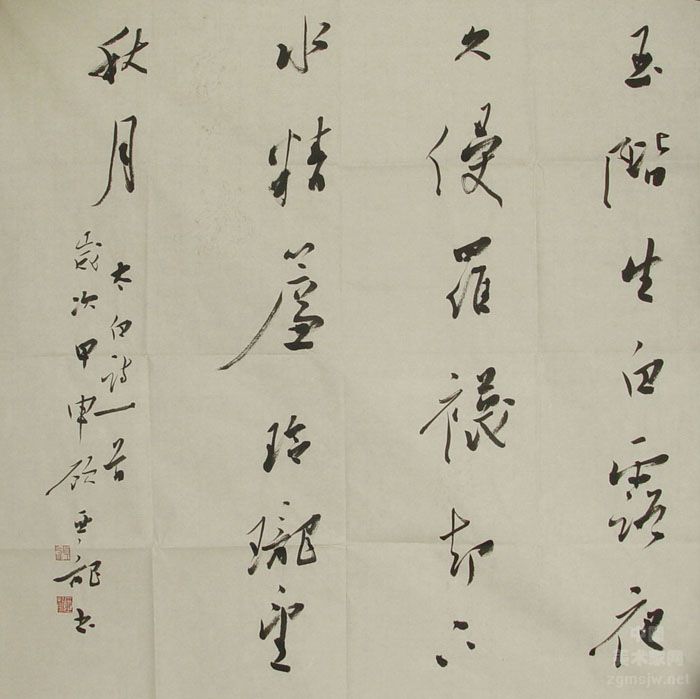 玉階生白露夜
久侵羅襪却下
水精簾玲瓏望
秋月
太白詩一首
歲次甲申顧亞龍書
中国
美术家网
zgmsjw.net